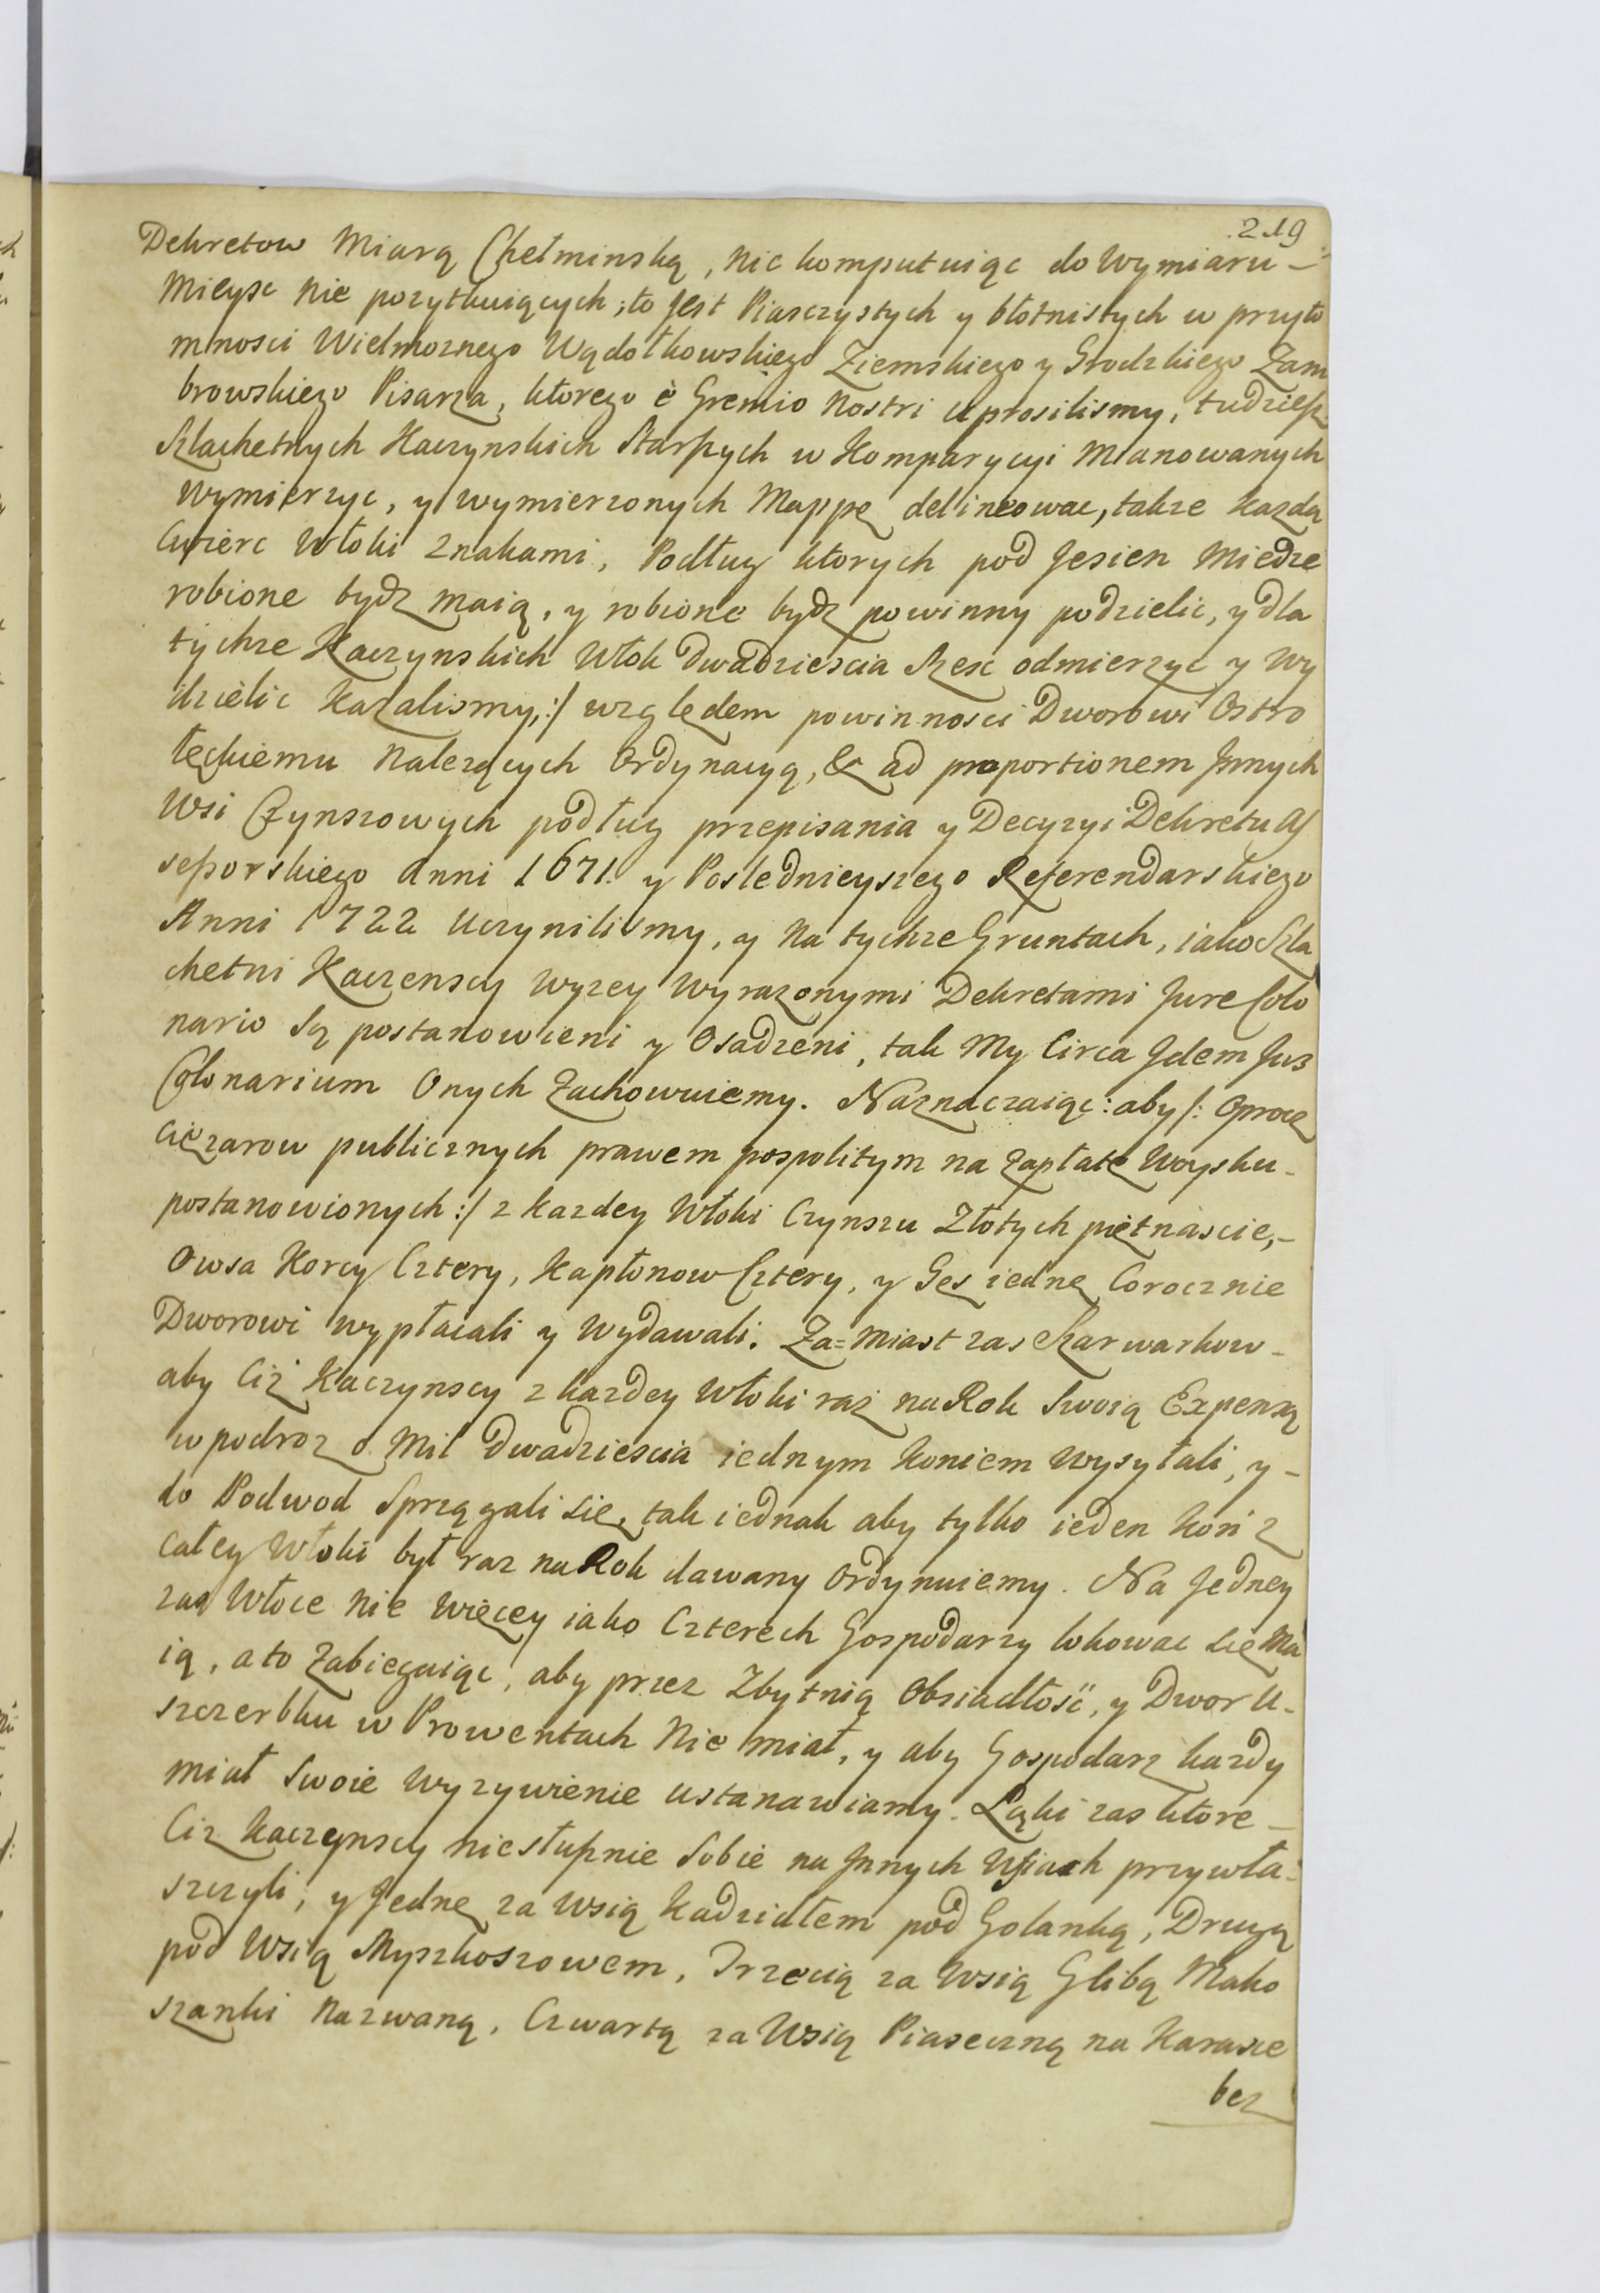 219
Dekretow Miarą Chełminską, nie komputuiąc do wymiaru –
Mieysc nie pozytkuiących; to Jest Piasczystych y błotnistych w przyto
mnosci Wielmoznego Wądołkowskiego Ziemskiego y Grodzkiego Zam
browskiego Pisarza, ktorego è Gremio Nostri uprosilismy, tudziesz
Szlachetnych Kaczynskich Starszych w Komparycyi Mianowanych
wymierzyc, y wymierzonych Mappę delineowac, takze kazdą
Cwierc Włoki Znakami, Podług ktorych pod Jesien Miedze
robione bydz maią, y robione bydz powinny podzielic, y dla
tychze Kaczynskich Włok dwadziescia Szesc odmierzyc y wy
dzielic kazalismy:/ względem powinnosci Dworowi Ostro
łęckiemu Nalezących Ordynacyą, & ad proportionem Jnnych
Wsi Czynszowych podług przepisania y Decyzyi Dekretu As
sessorskiego Anni 1671. y Poslednieyszego Referendarskiego
Anni 1722 Uczynilismy, y Na tychze Gruntach, iako Szla
chetni Kaczenscy wyzey wyrazonymi Dekretami Jure Colo
nario Są postanowieni y Osadzeni, tak My Circa Jdem Jus
Colonarium Onych Zachowuiemy. Naznaczaiąc: aby /: Oprocz
ciężarow publicznych prawem pospolitym na zapłatę Woysku –
postanowionych :/ z kazdey Włoki Czynszu Złotych piętnascie, –
Owsa Korcy Cztery, Kapłonow Cztery, y Gęs iednę Corocznie
Dworowi wypłacali y wydawali. Za= miast zas Szarwarkow –
aby Ciż Kaczynscy z kazdey Włoki raz na Rok Swoią Expensą
w podroz o Mil Dwadziescia iednym koniem wysyłali, y –
do Podwod Sprzągali się, tak iednak aby tylko ieden koń z
całey Włoki był raz na Rok dawany Ordynuiemy. Na Jedney
zas Włoce nie więcey iako Czterech Gospodarzy lokowac się Ma
ią, a to Zabiegaiąc, aby przez Zbytnią Obsiadłość, y Dwor U –
szczerbku w Prowentach Nie miał, y aby Gospodarz kazdy
miał Swoie Wyzywienie ustanawiamy. Łąki zas ktore –
Ciz Kaczynscy niesłusznie Sobie na Jnnych Wsiach przywła-
szczyli, y Jednę za Wsią Kadzidłem pod Golanką, Drugą
pod Wsią Myszkoszowem, Trzecią za Wsią Glibą Mako
szanki Nazwaną, Czwartą za Wsią Piaseczną na Karasce
bez